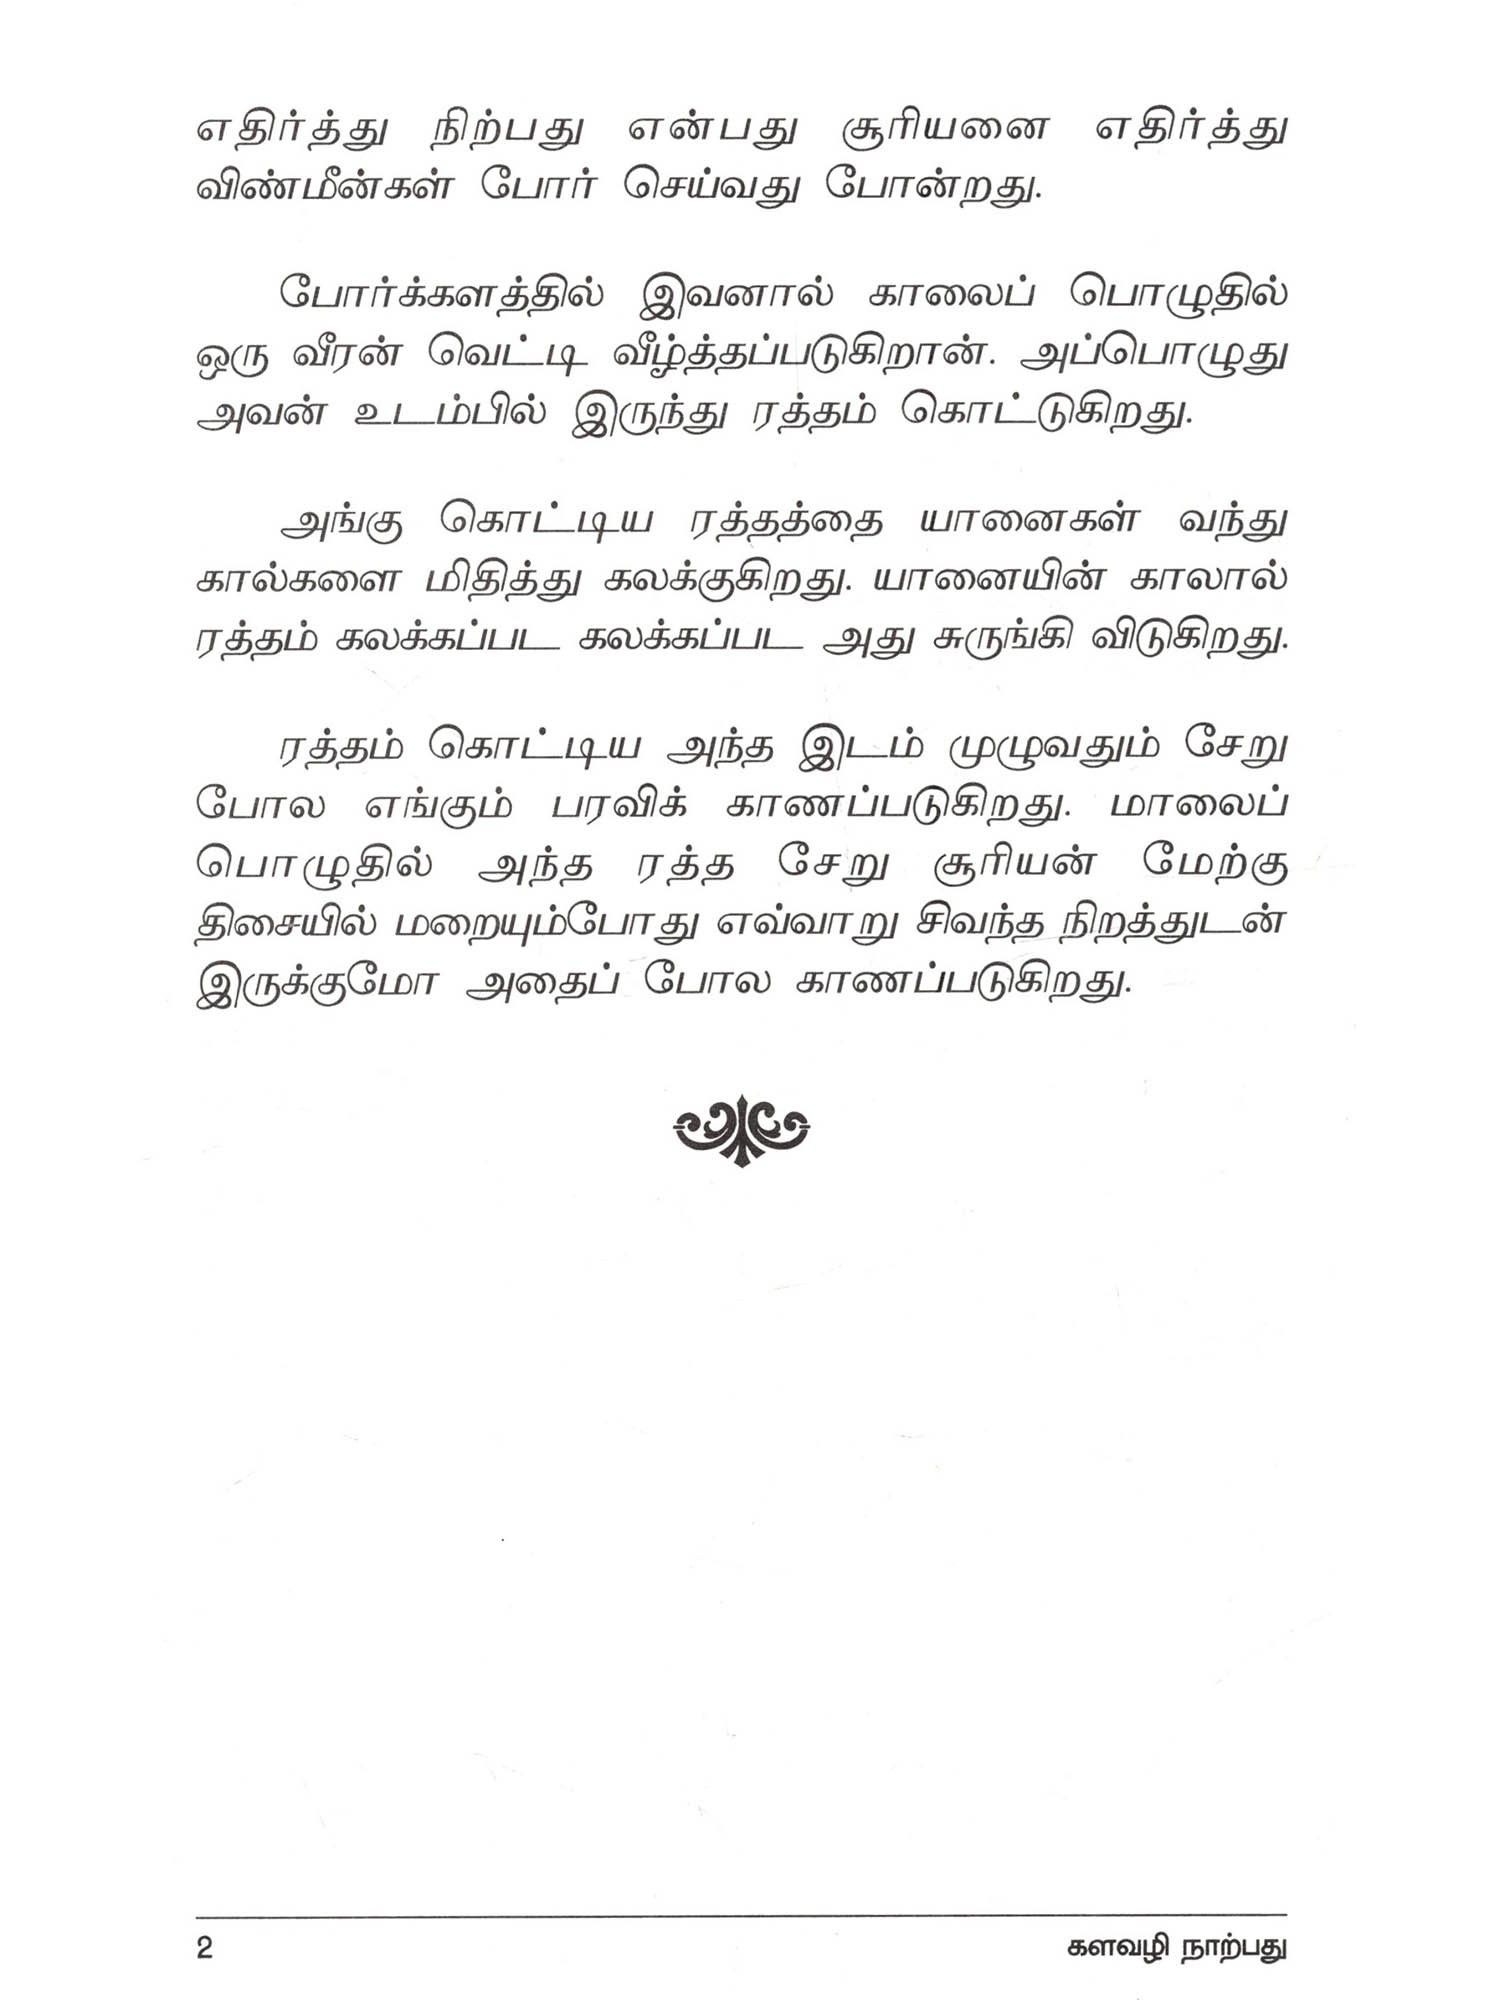 எதிர்த்து நிற்பது என்பது சூரியனை எதிர்த்து
விண்மீன்கள் போர் செய்வது போன்றது.
போர்க்களத்தில் இவனால் காலைப் பொழுதில்
ஒரு வீரன் வெட்டி வீழ்த்தப்படுகிறான். அப்பொழுது
அவன் உடம்பில் இருந்து ரத்தம் கொட்டுகிறது.
அங்கு கொட்டிய ரத்தத்தை யானைகள் வந்து
கால்களை மிதித்து கலக்குகிறது. யானையின் காலால்
ரத்தம் கலக்கப்பட கலக்கப்பட அது சுருங்கி விடுகிறது.
ரத்தம் கொட்டிய அந்த இடம் முழுவதும் சேறு
போல எங்கும் பரவிக் காணப்படுகிறது. மாலைப்
பொழுதில் அந்த ரத்த சேறு சூரியன் மேற்கு
திசையில் மறையும்போது எவ்வாறு சிவந்த நிறத்துடன்
இருக்குமோ அதைப் போல காணப்படுகிறது.
2 களவழி நாற்பது